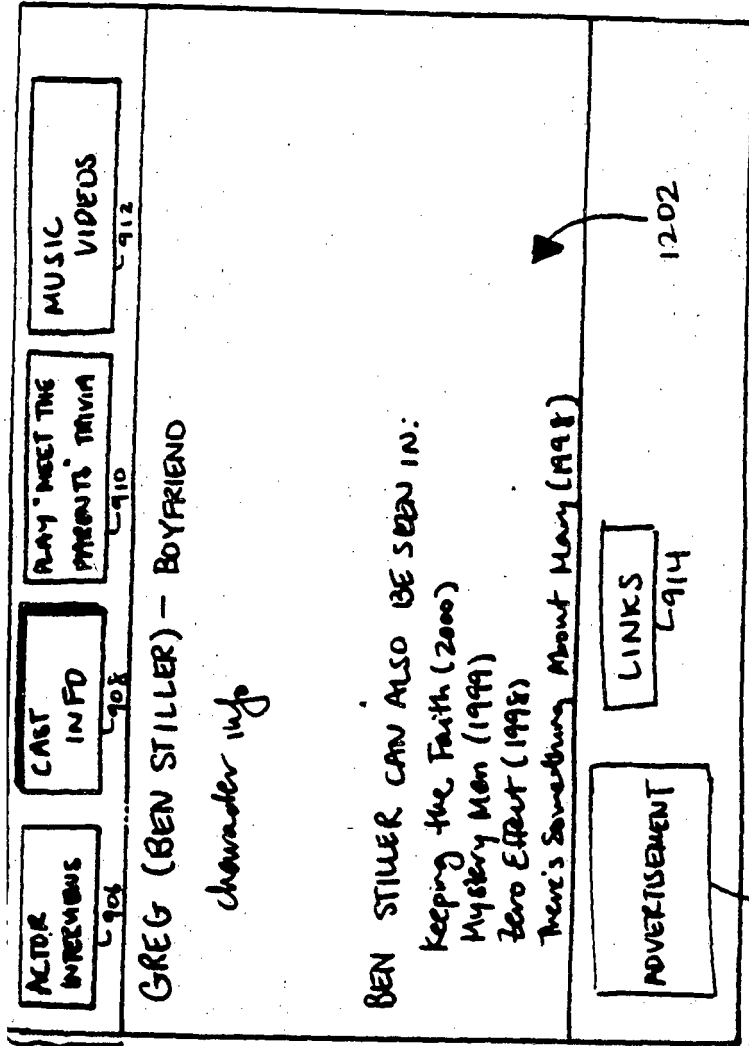 ACTOR
INTERVIEWS
906
CAST
INFO
908
PLAY "MEET THE
PARENTS" TRIVIA
910
MUSIC
VIDEOS
912
GREG (BEN STILLER) — BOYFRIEND
character info
BEN STILLER CAN ALSO BE SEEN IN:
Keeping the Faith (2000)
Mystery Men (1999)
Zero Effect (1998)
There's Something About Mary (1998)
1202
ADVERTISEMENT
LINKS
914